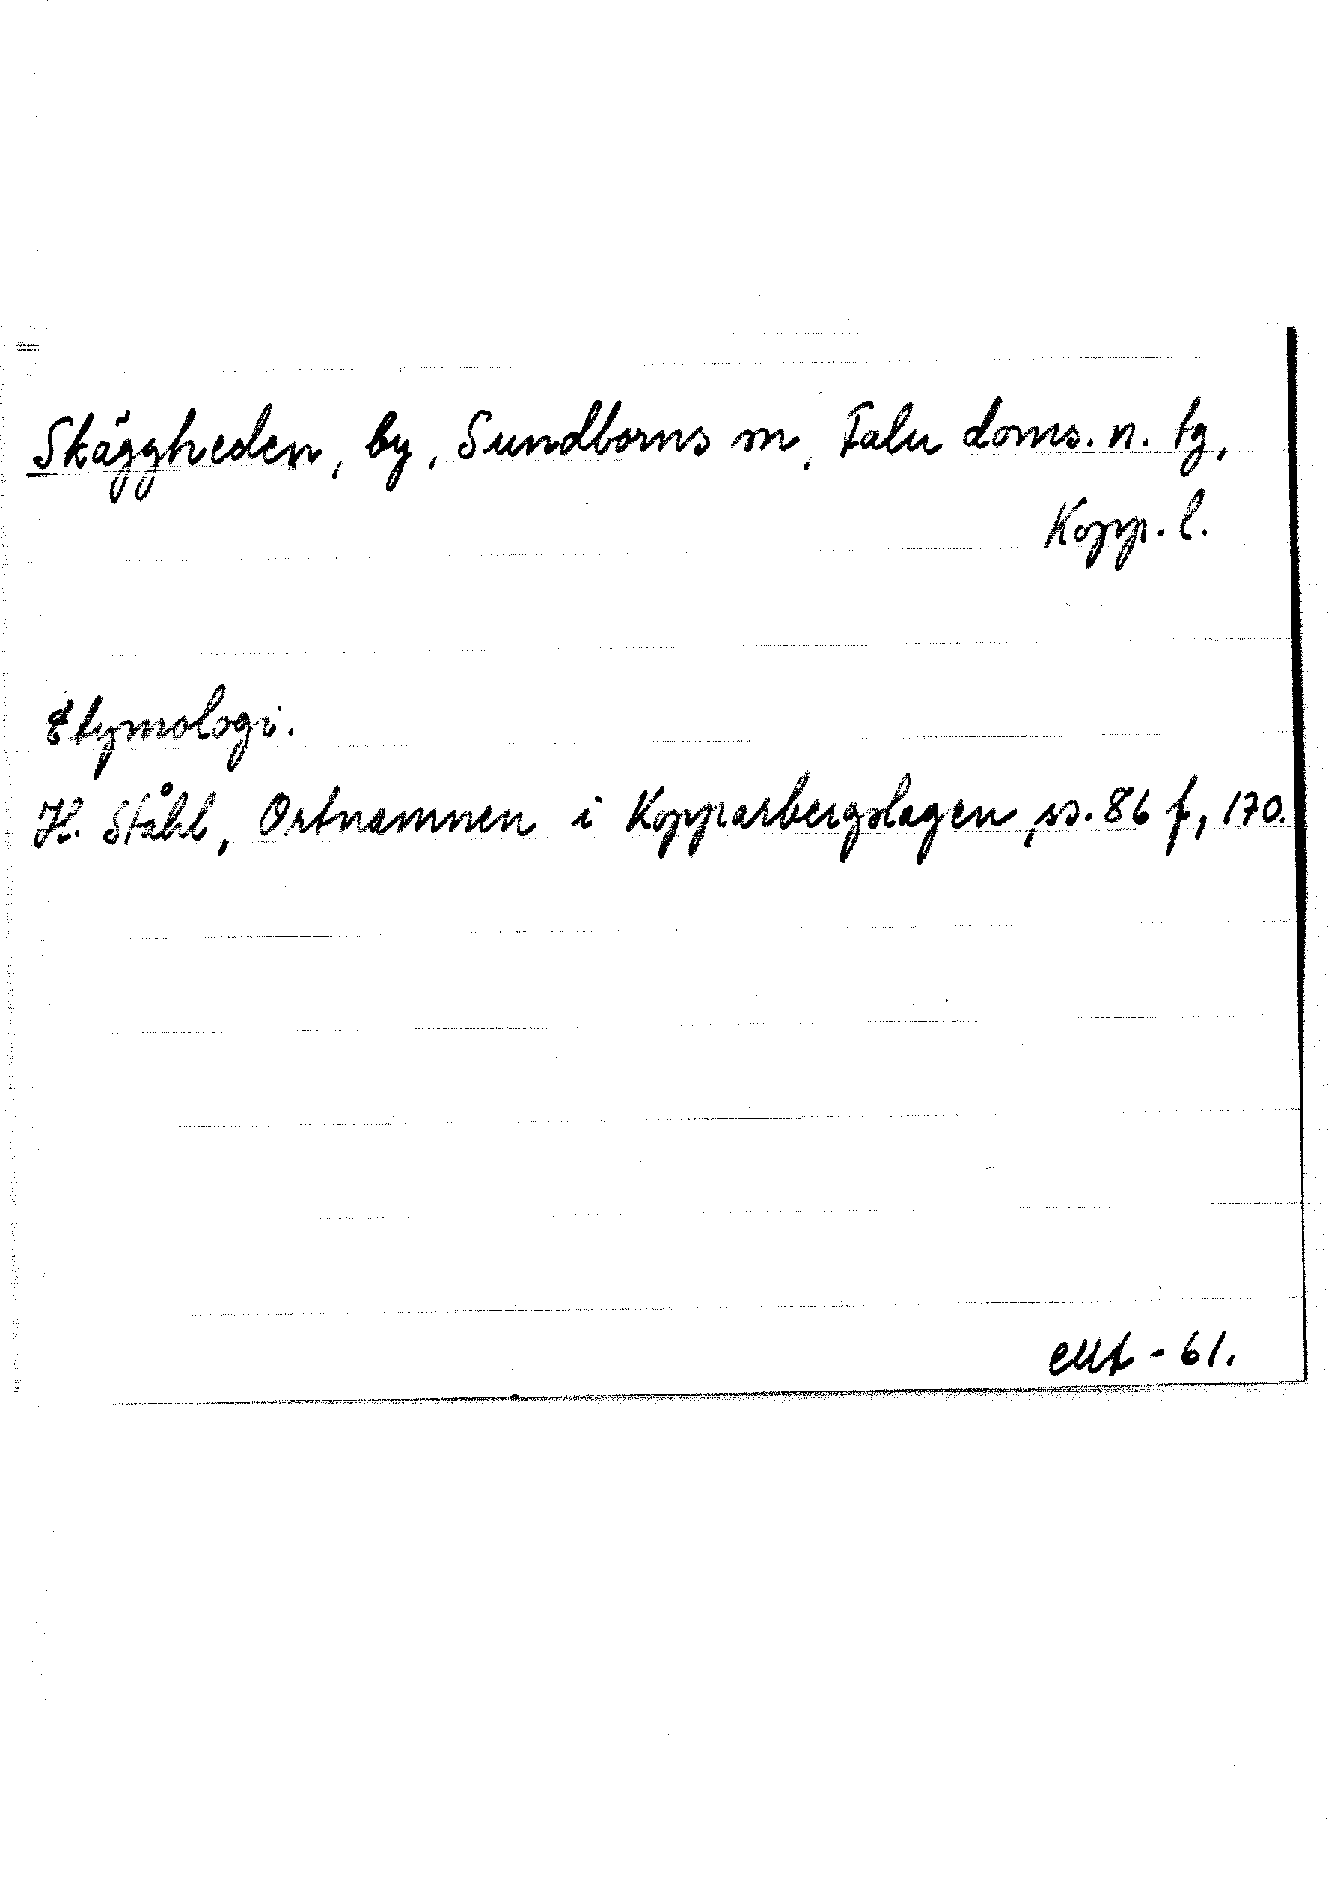 Skäggheden, by, Sundborns sn, Falu doms. n. tg,
Kopp. l.
Etymologi.
H. Ståhl, Ortnamnen i Kopparbergslagen, ss. 86 f, 170.
- 61.